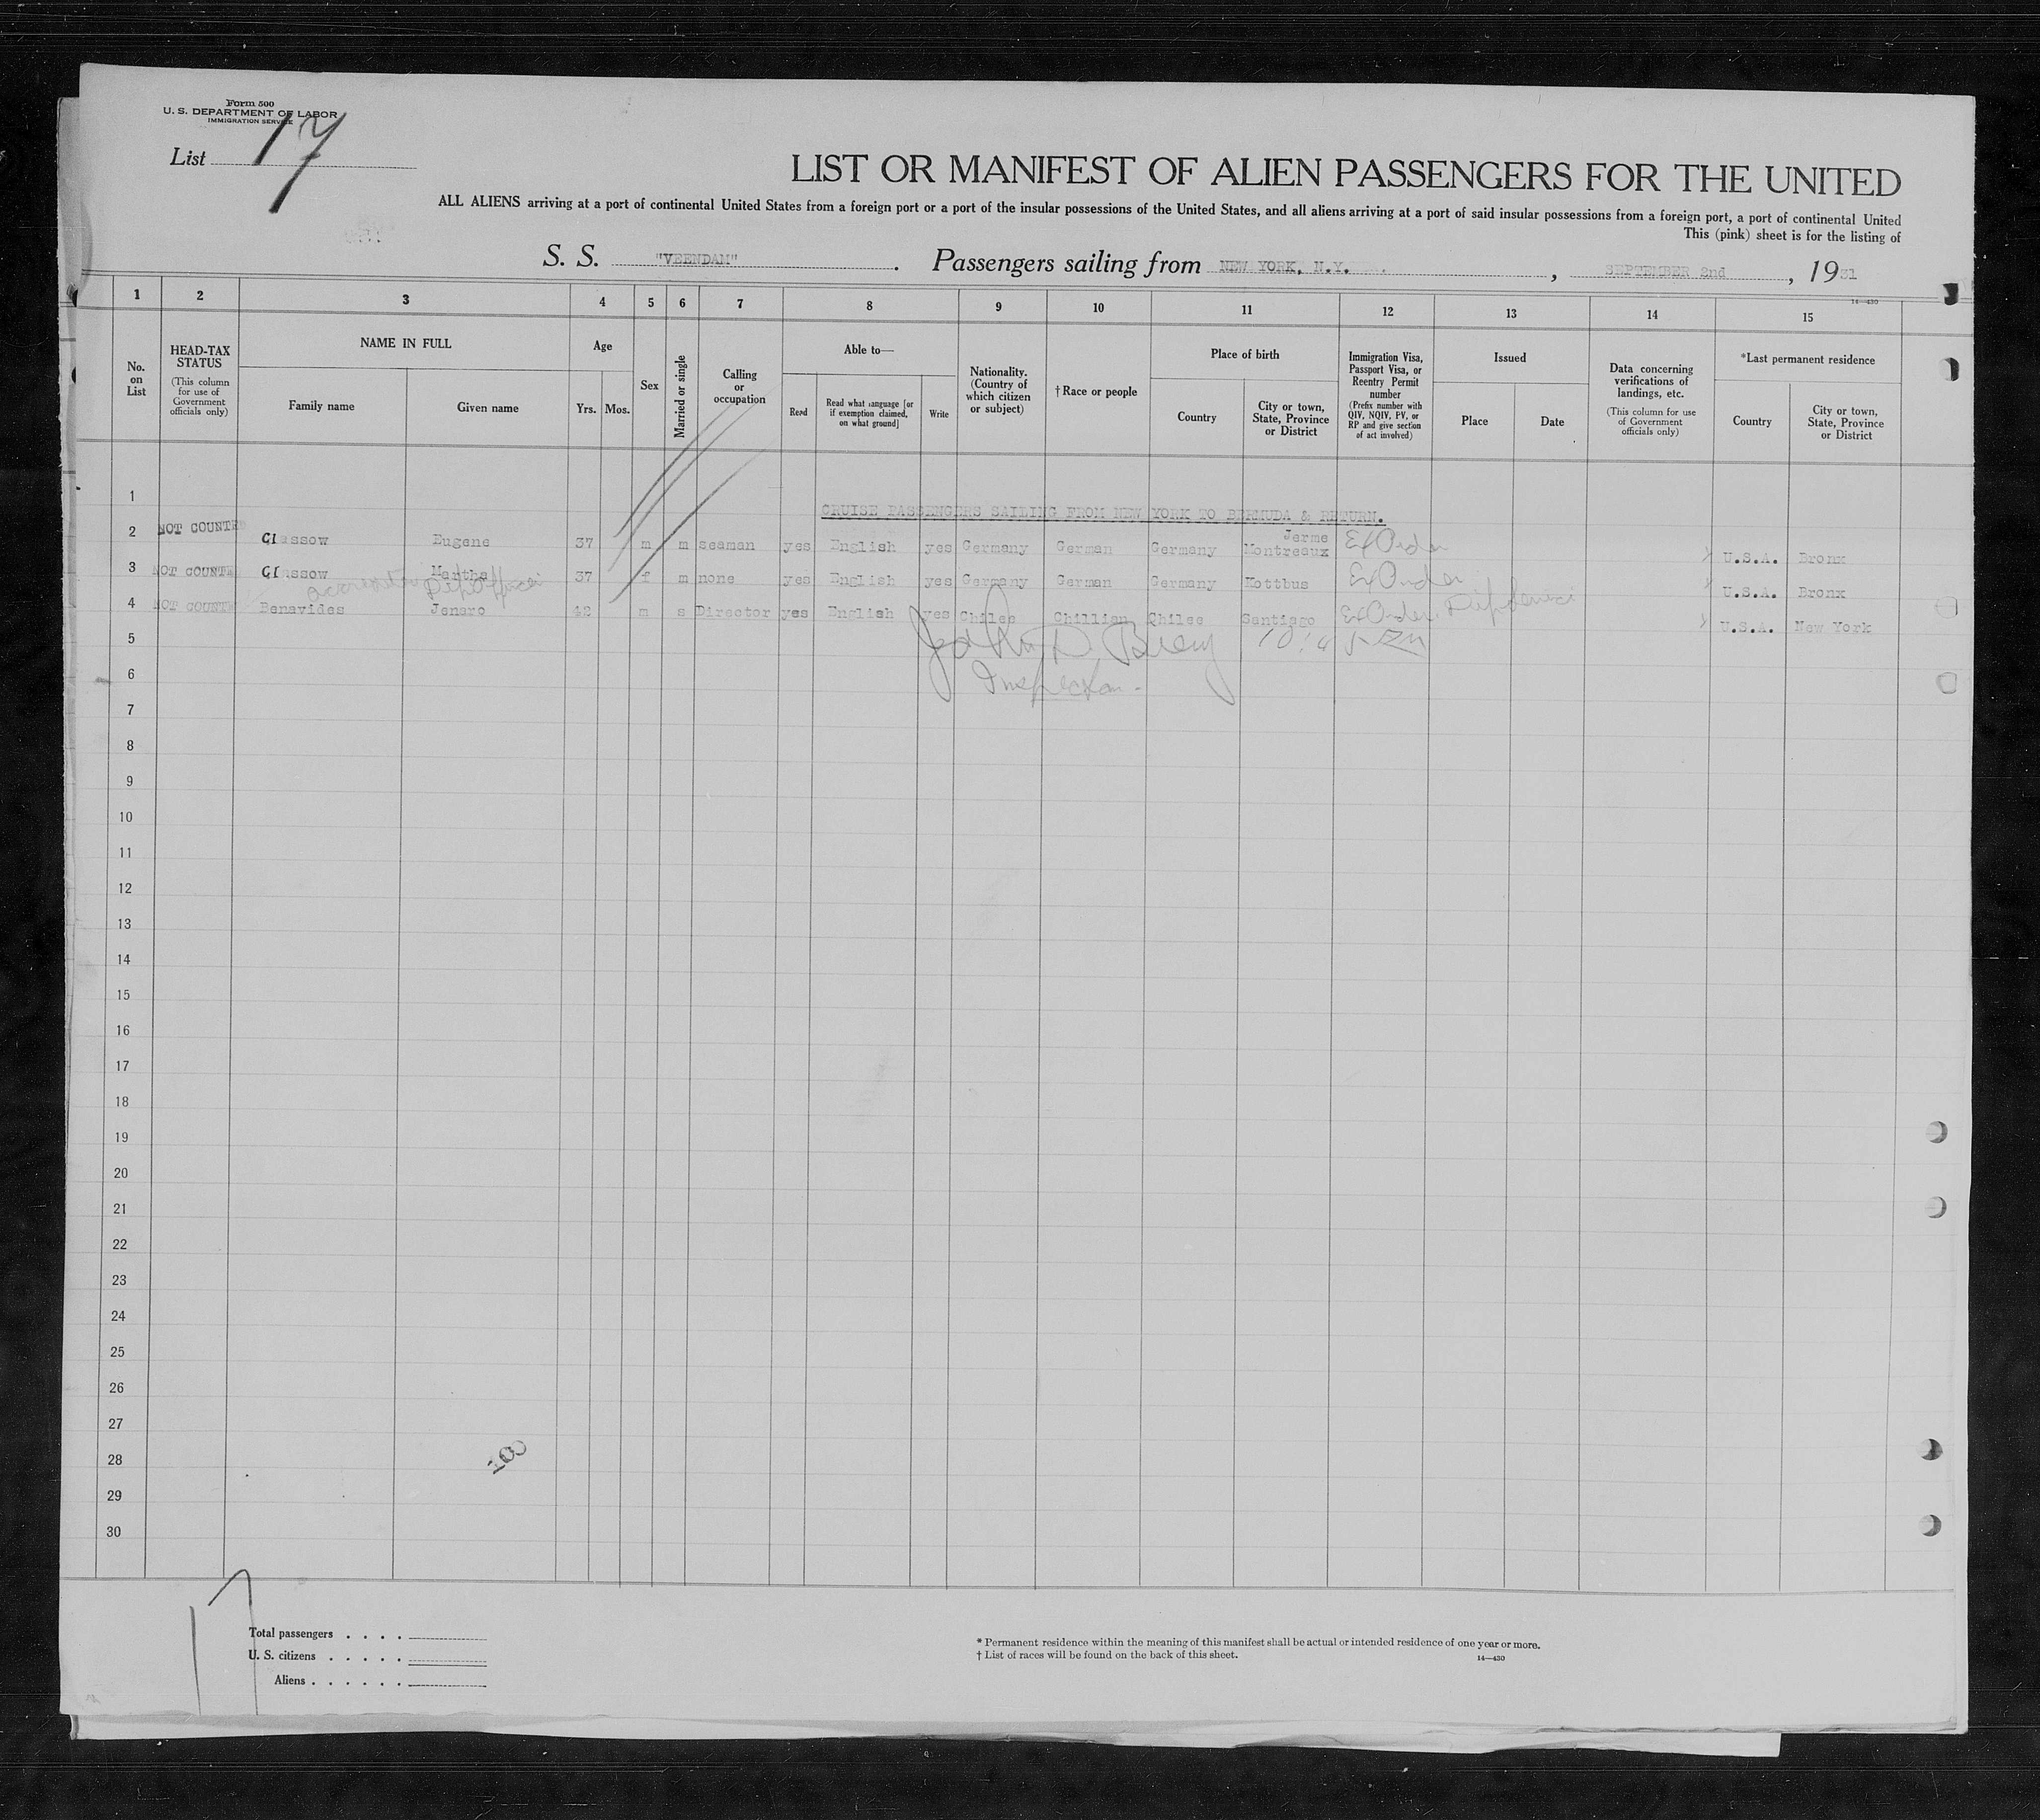 Form 500
U. S. DEPARTMENT OF LABOR
IMMIGRATION SERVICE
List 17
LIST OR MANIFEST OF ALIEN PASSENGERS FOR THE UNITED
ALL ALIENS arriving at a port of continental United States from a foreign port or a port of the insular possessions of the United States, and all aliens arriving at a port of said insular possessions from a foreign port, a port of continental United
This (pink) sheet is for the listing of
S. S. "VEENDAM" . Passengers sailing from NEW YORK, N.Y. , SEPTEMBER 2nd , 1931
14—430
1 2 3 4 5 6 7 8 9 10 11 12 13 14 15
No. on List
HEAD-TAX STATUS (This column for use of Government officials only)
NAME IN FULL
Family name
Given name
Age
Yrs.
Mos.
Sex
Married or single
Calling or occupation
Able to—
Read
Read what language [or if exemption claimed, on what ground]
Write
Nationality. (Country of which citizen or subject)
† Race or people
Place of birth
Country
City or town, State, Province or District
Immigration Visa, Passport Visa, or Reentry Permit number (Prefix number with QIV, NQIV, PV, or RP and give section of act involved)
Issued
Place
Date
Data concerning verifications of landings, etc. (This column for use of Government officials only)
*Last permanent residence
Country
City or town, State, Province or District
1
CRUISE PASSENGERS SAILING FROM NEW YORK TO BERMUDA & RETURN.
2 NOT COUNTE Glassow Eugene 37 m m seaman yes English yes Germany German Germany Jerme Montreaux Ex Order U.S.A. Bronx
3 NOT COUNTE Glassow Martha 37 f m none yes English yes Germany German Germany Kottbus Ex Order U.S.A. Bronx
4 NOT COUNTE Benavides Jenaro 42 m s Director yes English yes Chilee Chillian Chilee Santiago Ex Order U.S.A. New York
5
Inspector
6
7
8
9
10
11
12
13
14
15
16
17
18
19
20
21
22
23
24
25
26
27
28
29
30
17
Total passengers . . . .
U. S. citizens . . . . .
Aliens . . . . . .
* Permanent residence within the meaning of this manifest shall be actual or intended residence of one year or more.
† List of races will be found on the back of this sheet.
14—430